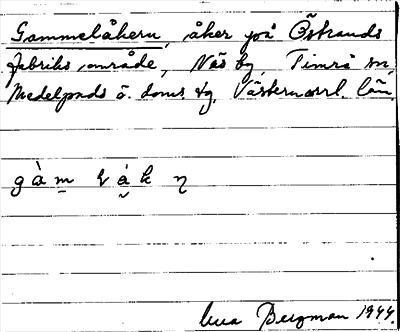 Gammelåkern, åker på Östrands
fabriks område, Näs by, Timrå sn,
Medelpads ö. doms. tg. Västernorrl. län.
Bergman 1944.